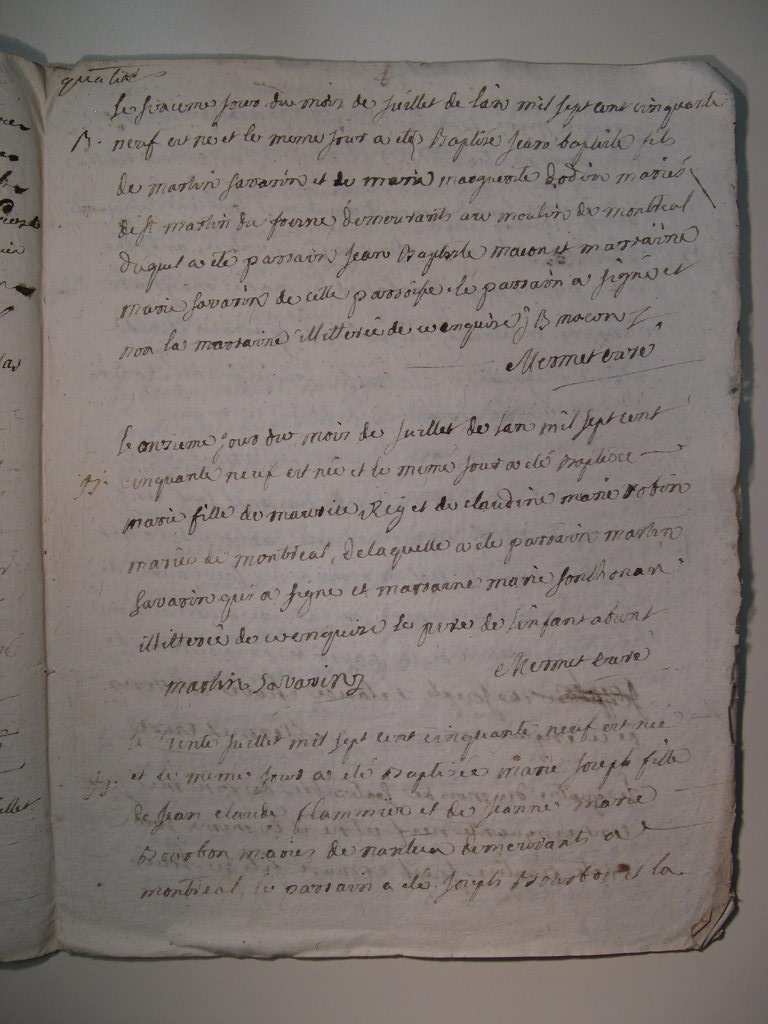 Le sixieme jour du mois de juillet de l'an mil sept cent cinquante
B. neuf est né et le meme jour a eté Baptisé Jean baptiste fils
de martin savarin et de marie marguerite Dodin mariés
de st martin du frene demeurants au moulin de montreal
duquel a eté parrain Jean Baptiste macon et marraine
marie savarin de cette parroisse le parrain a signé et
non la marraine illitteré de ce enquise J B macon
Mermet curé
Le onzieme jour du mois de juillet de l'an mil sept cent
cinquante neuf est né et le meme jour a eté Baptisée
marie fille de maurice Rey et de claudine marie robin
mariés de montreal, de laquelle a eté parrain martin
savarin qui a signé et marraine marie sonthonax
illitteré de ce enquise le pere de l'enfant absent
martin savarin Mermet curé
le trente juillet mil sept cent cinquante neuf est née
et le meme jour a eté Baptisée marie Joseph fille
de Jean claude flammier et de jeanne marie
Bourbon mariés de nantua demeurants a
montreal, le parrain a eté Joseph Bourbon et la